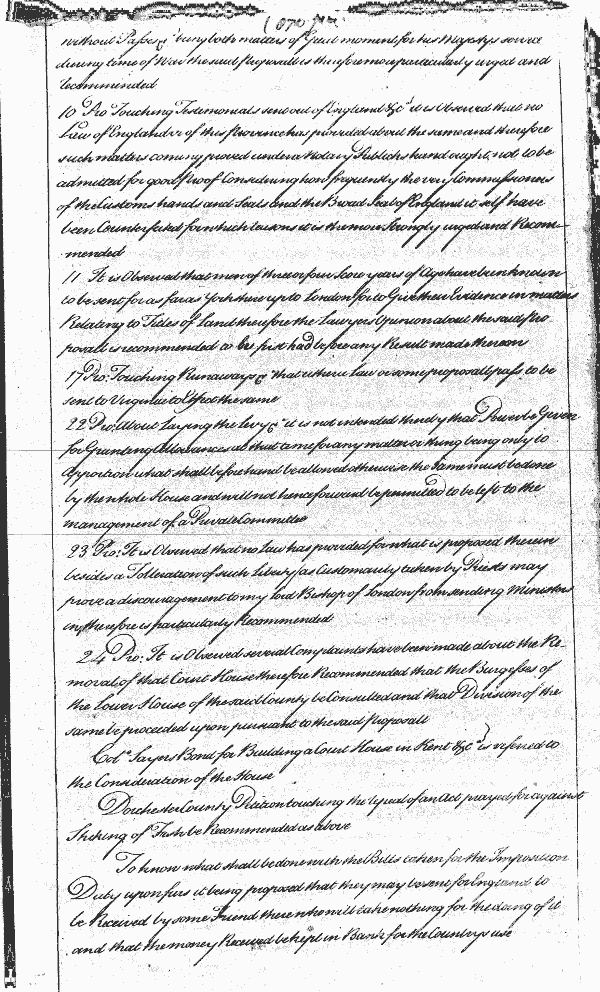 without Passes &c being both matters of Great moment for his Majestys service
during time of War the said proposall is therefore more particularly urged and
Recommended
10 Pro: Touching Testimonials sent out of England &c it is Observed that no
Law of England or of this Province has provided about the same and therefore
such matters coming proved under a Notary Publicks hand ought not to be
admitted for good Proof Considering how frequently the very Commissioners
of the Customs hands and Seals and the Broad Seal of England it self have
been Counterfeited for which reasons it is the more Strongly urged and Recom-
mended
11 It is Observed that men of three or four Score years of Age have been known
to be sent for as far as Yorkshire up to London for to Give their Evidence in matters
Relating to Titles of Land therefore the Lawyers Opinion about the said Pro
posall is recommended to be first had before any Result made thereon
17 Pro: Touching Runaways &c that either a Law or some proposalls pass to be
sent to Virginia to Effect the same
22 Pro: About Laying the Levy &c it is not intended thereby that Power be Given
for Granting Allowances at that time for any matter or thing being only to
Apportion what shall beforehand be allowed otherwise the same must be done
by the whole House and will not henceforward be permitted to be left to the
management of a Private Committee
23 Pro: It is Observed that no Law has provided for what is proposed therein
besides a Tolleration of such Liberty as Customarily taken by Priests may
prove a discouragement to my Lord Bishop of London from sending Ministers
in, therefore is particularly Recommended
24 Pro: It is Observed severall Complaints have been made about the Re-
moval of that Court House therefore Recommended that the Burgesses of
the Lower House of the said County be Consulted and that Division of the
same be proceeded upon pursuant to the said Proposall
Colo Sayers Bond for Building a Court House in Kent &c is referred to
the Consideration of the House
Dorchester County Petition touching the repeal of an Act prayed for against
Striking of Fish be Recommended as above
To know what shall be done with the Bills taken for the Imposition
Duty upon furs it being proposed that they may be sent for England to
be Received by some Friend there who will take nothing for the doing of it
and that the money Received be kept in Bank for the Countrys use